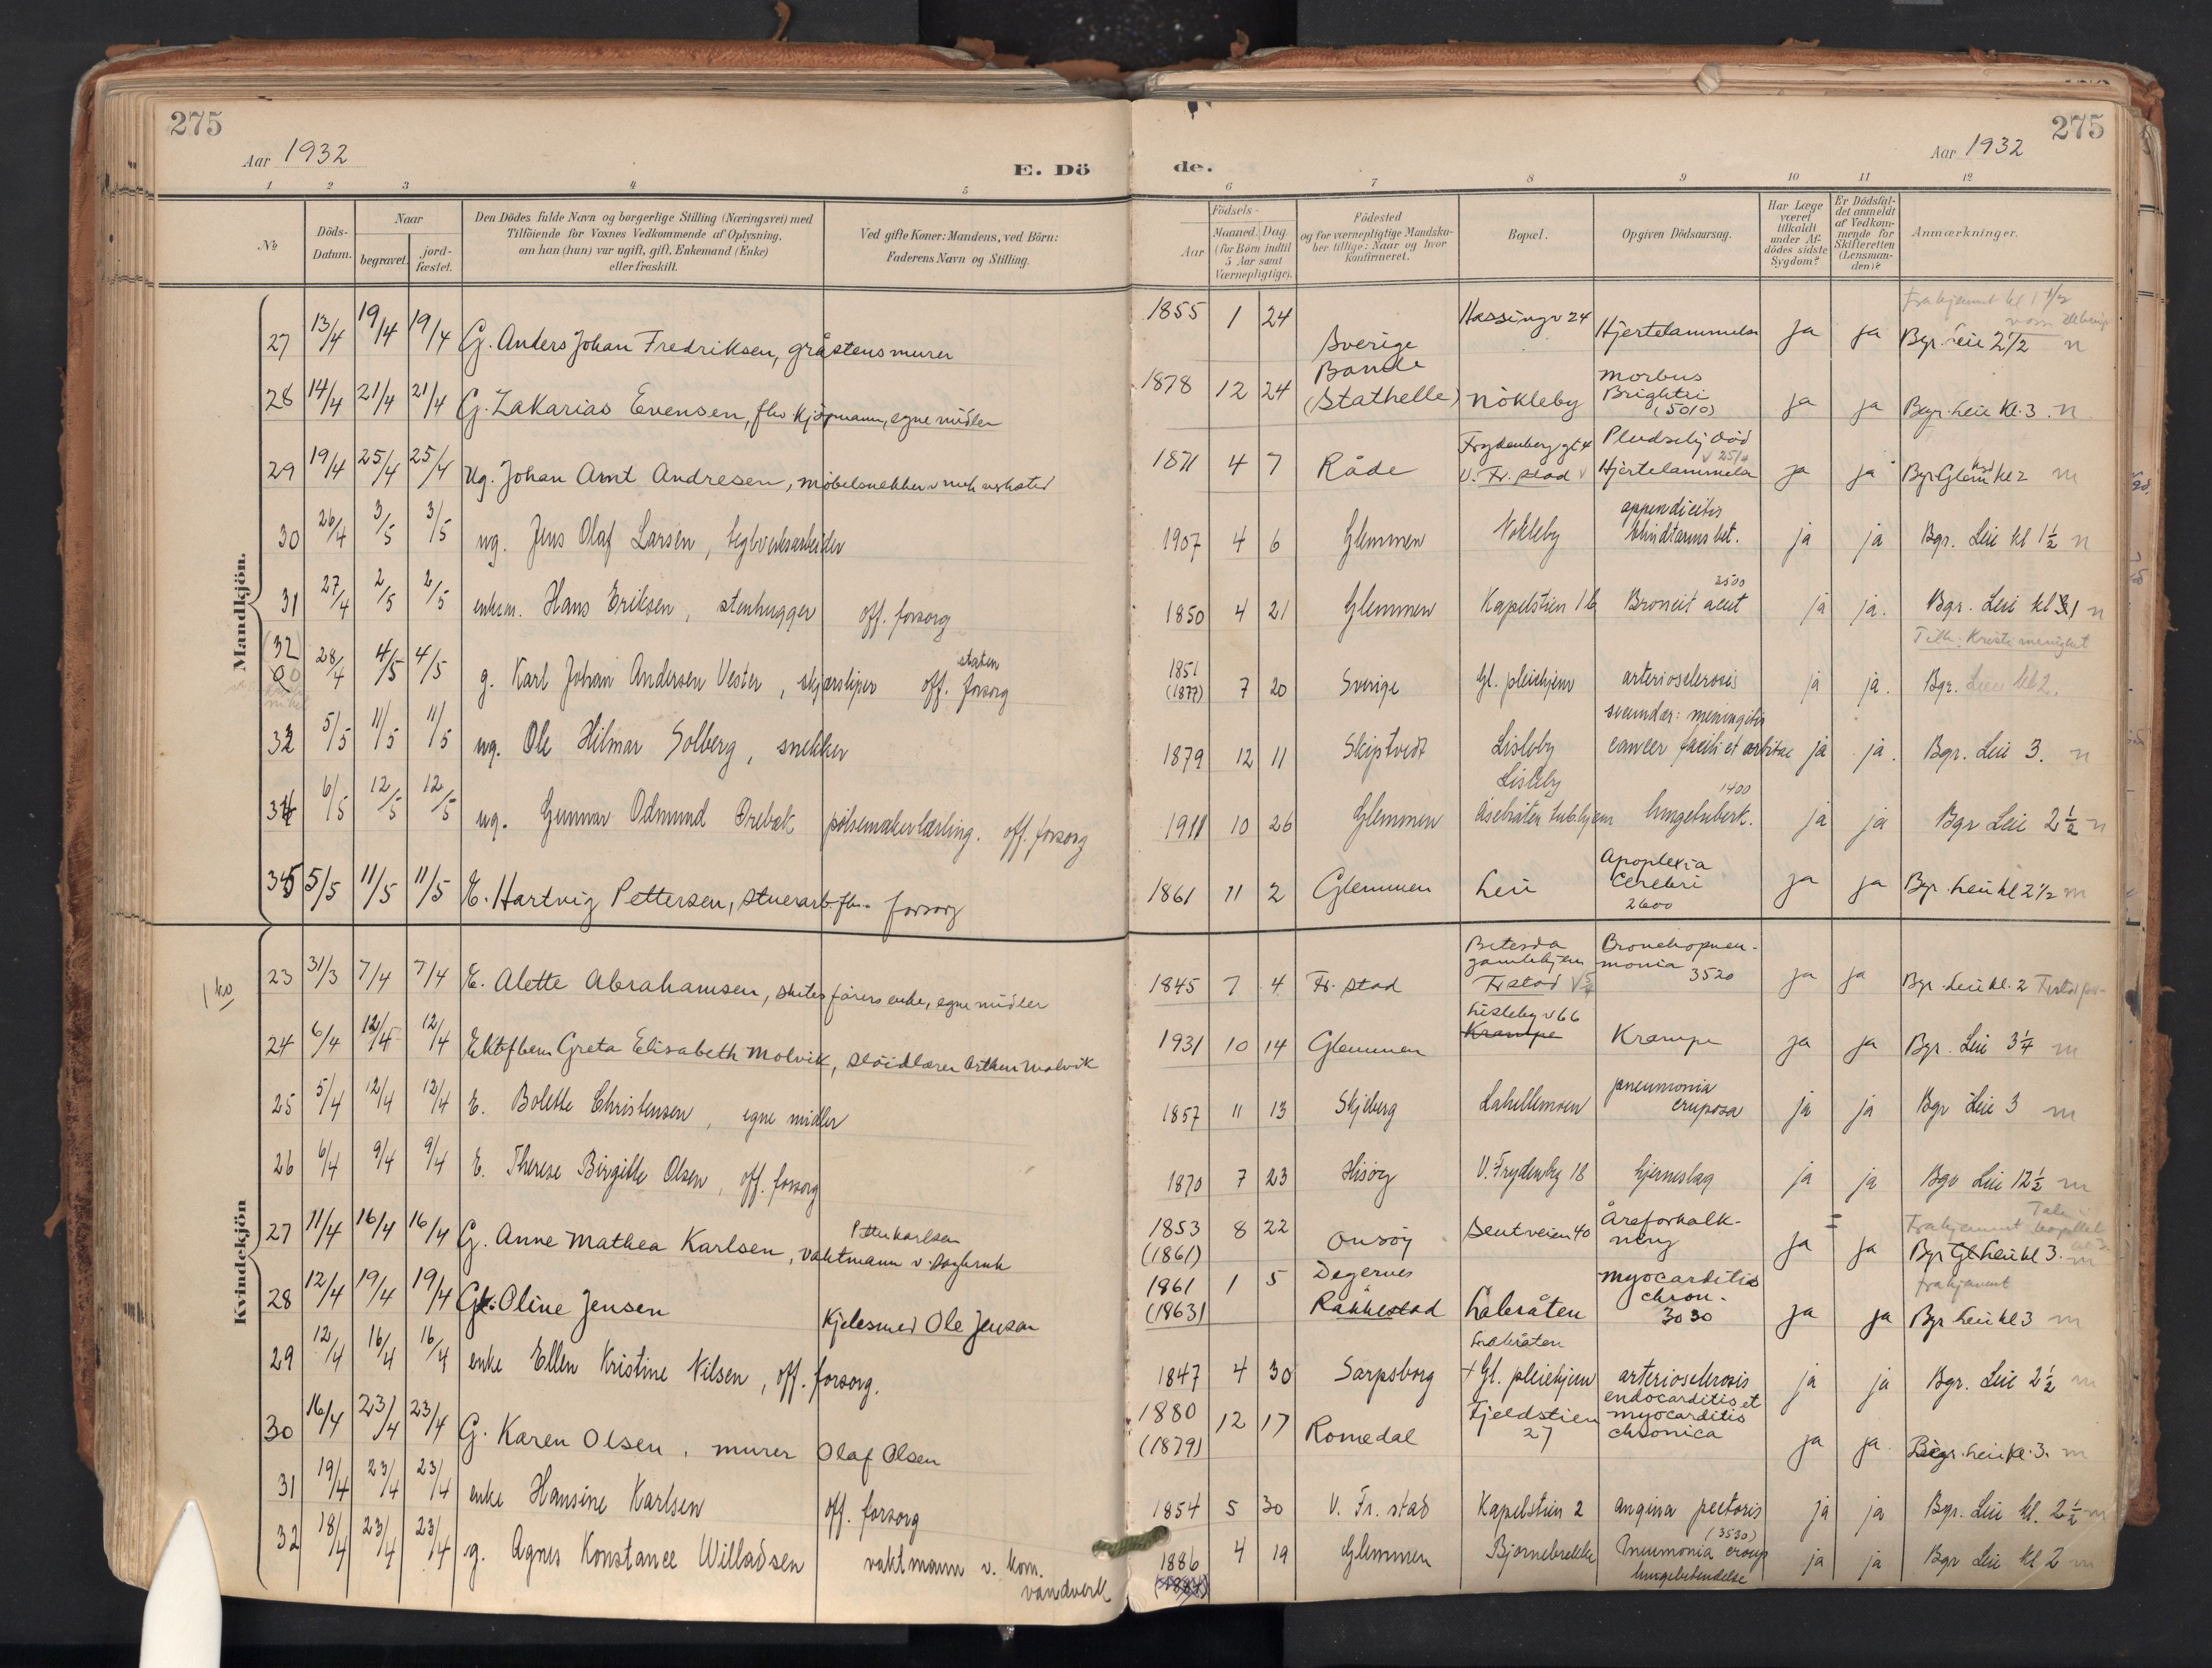 275
Aar 1932
E. Dö
de.
Aar 1932
275
1 2 3 4 5 6 7 8 9 10 11 12
No
Döds-
Datum.
Naar
begravet.
jord-
fæstet.
Den Dödes fulde Navn og borgerlige Stilling (Næringsvei) med
Tilföiende for Voxnes Vedkommende af Oplysning,
om han (hun) var ugift, gift, Enkemand (Enke)
eller fraskilt.
Ved gifte Koner: Mandens, ved Börn:
Faderens Navn og Stilling.
Födsels-
Aar
Maaned.
Dag
(for Börn indtil
5 Aar samt
Værnepligtige).
Födested
og for værnepligtige Mandska-
ber tillige: Naar og hvor
konfirmeret.
Bopæl.
Opgiven Dödsaarsag.
Har Læge
været
tilkaldt
under Af-
dödes sidste
Sygdom?
Er Dödsfal-
det anmeldt
af Vedkom-
mende for
Skifteretten
(Lensman-
den)?
Anmærkninger.
Mandkjön.
27 13/4 19/4 19/4 G. Anders Johan Fredriksen, gråstensmurer 1855 1 24 Sverige Hassingv 24 Hjertelammelse ja ja Bgr. Leie 2 1/2 n
Frahjemmet kl 1 1/2
28 14/4 21/4 21/4 G. Zakarias Evensen, fhv kjöpmann, egne midler 1878 12 24 Bamle (Stathelle) Nökleby Morbus Brightii (5010) ja ja Begr. Leie Kl. 3. n
29 19/4 25/4 25/4 Ug. Johan Arnt Andresen, möbelsnekker v mek verksted 1871 4 7 Råde Frydenberg gt 4 V. Fr. stad Pludselig död Hjertelammelse ja ja Bgr Glem kl 2 m
30 26/4 3/5 3/5 ug. Jens Olaf Larsen, teglverksarbeider 1907 4 6 Glemmen Nökleby appendicitis blindtarmsbet. ja ja Bgr. Leie kl 1 1/2 n
31 27/4 2/5 2/5 enkem. Hans Eriksen, stenhugger off. forsorg 1850 4 21 Glemmen Kapelstien 16 2500 Broncit acut ja ja. Bgr. Leie kl 1 n
(32 28/4 4/5 4/5 g. Karl Johan Andersen Vester, skjærsliper off. forsorg staten 1851 (1877) 7 20 Sverige Gl. pleiehjem arteriosclerosis ja ja. Bgr. Leie kl 2.
Tilh. Kristi menighet
33 5/5 11/5 11/5 ug. Ole Hilmar Solberg, snekker 1879 12 11 Skiptvedt Lisleby secundær: meningitis cancer faciti et orbitae ja ja. Bgr. Leie 3. n
34 6/5 12/5 12/5 ug. Gunnar Odmund Örebæk pölsemakerlærling. off. forsorg 1911 10 26 Glemmen Lisleby Åsebråten tub.hjem 1400 lungetuberk. ja ja Bgr Leie 2 1/2 n
35 5/5 11/5 11/5 E. Hartvig Pettersen, stuerarb. fhv. forsorg 1861 11 2 Glemmen Leie Apoplexia Cerebri 2600 ja ja Bgr. Leie kl 2 1/2 m
Kvindekjön
23 31/3 7/4 7/4 E. Alette Abrahamsen, skibsförers enke, egne midler 1845 7 4 Fr. stad Betesda gamlehjem Fr stad Bronchopneu-monia 3520 ja ja Bgr. Leie kl. 2
24 6/4 12/4 12/4 Ektef barn Greta Elisabeth Molvik, slöidlærer Arthur Molvik 1931 10 14 Glemmen Lisleby v 66 Krampe Krampe ja ja Bgr. Leie 3 1/4 m
25 5/4 12/4 12/4 E. Bolette Christensen, egne midler 1857 11 13 Skjeberg Lahellemoen pneumonia cruposa ja ja Bgr Leie 3 m
26 6/4 9/4 9/4 E. Therese Birgitte Olsen, off. forsorg 1870 7 23 Hisöy V. Frydenbg 18 hjerneslag ja ja Bgr Leie 12 1/2 m
27 11/4 16/4 16/4 G. Anne Mathea Karlsen, Petter Karlsen vaktmann v. Dagbruk 1853 (1861) 8 22 Onsöy Sentveien 40 Åreforkalk-ning ja ja Bgr Gl Leie kl 3. m
28 12/4 19/4 19/4 G. Oline Jensen Kjelesmed Ole Jensen 1861 (1863) 1 5 Degernes Rakkestad Labråten Myocarditis chron. 3030 ja ja Bgr Leie kl 3 m
Frahjemmet
29 12/4 16/4 16/4 enke Ellen Kristine Nilsen, off. forsorg. 1847 4 30 Sarpsborg Labråten + Gl. pleiehjem arteriosclerosis ja ja Bgr. Leie 2 1/2 m
30 16/4 23/4 23/4 G. Karen Olsen, murer Olaf Olsen 1880 (1879) 12 17 Romedal Fjeldstien 27 endocarditis et myocarditis chronica ja ja Begr. Leie kl. 3. m
31 19/4 23/4 23/4 enke Hansine Karlsen off. forsorg 1854 5 30 V. Fr. stad Kapelstien 2 angina pectoris ja ja Bgr. Leie kl. 2 1/2 m
32 18/4 23/4 23/4 g. Agnes Konstance Willadsen vaktmann v. kom. vandverk 1886 4 19 Glemmen Björnebrekke (3530) Pneumonia croup lungebetendelse ja ja Bgr Leie kl 2 m